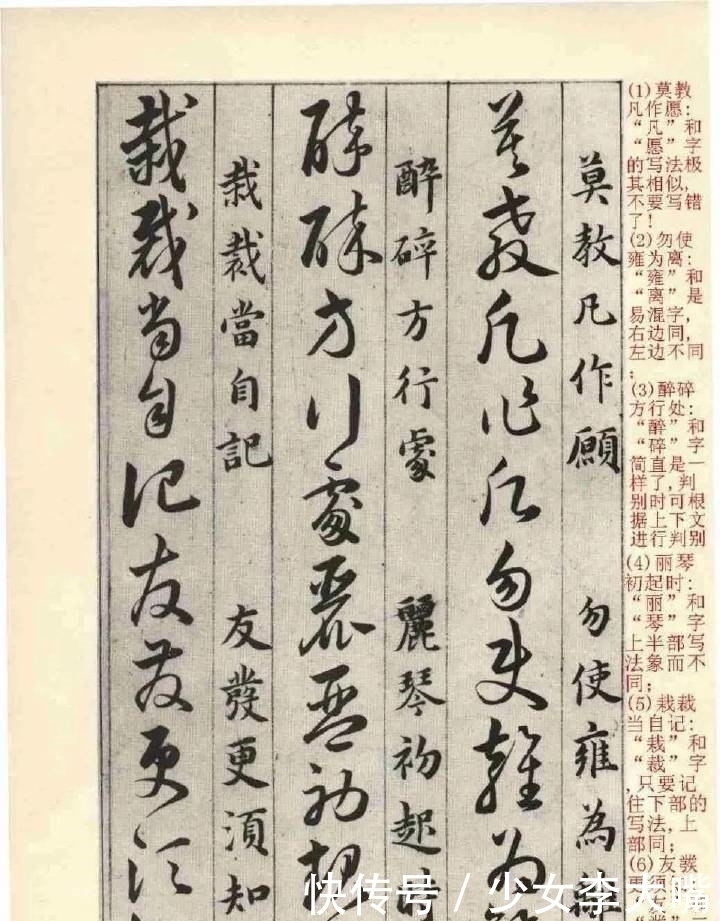 (1)莫教
凡作愿:
“凡”和
“愿”字
的写法极
其相似,
不要写错
了!
(2)勿使
雍为离:
“雍”和
“离”是
易混字,
右边同,
左边不同
;
(3)醉碎
方行处:
“醉”和
“碎”字
简直是一
样了,判
别时可根
据上下文
进行判别
(4)丽琴
初起时:
“丽”和
“琴”字
上半部写
法象而不
同;
(5)栽裁
当自记:
“栽”和
“裁”字
,只要记
住下部的
写法,上
部同;
(6)友发
莫教凡作願 勿使雍為
莫教凡作愿勿使雍为
醉碎方行處 麗琴初起
醉碎方行處麗琴初起
栽裁當自記 友發更須知
栽裁当自记友发更须
快传号／少女李大嘴